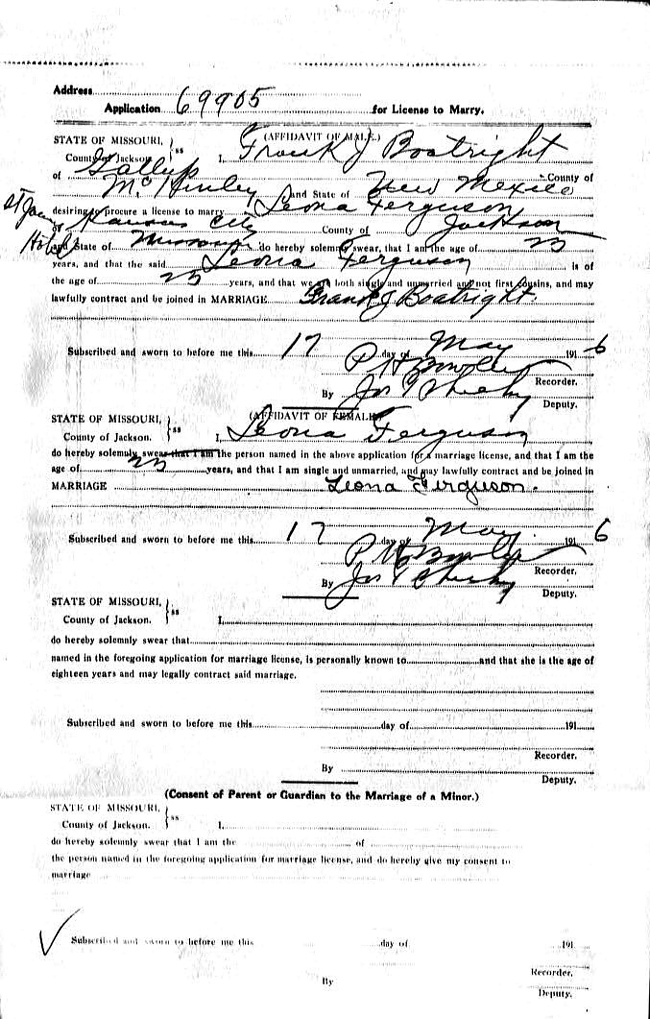 Address
Application 69905 for License to Marry.
(AFFIDAVIT OF MALE.)
STATE OF MISSOURI, } ss
County of Jackson. I, Frank J Boatright
of Gallup County of
McKinley and State of New Mexico
desiring to procure a license to marry Leona Ferguson
of Kansas City County of Jackson
St James Hotel
and State of Missouri do hereby solemnly swear, that I am the age of 23
years, and that the said Leona Ferguson is of
the age of 23 years, and that we are both single and unmarried and not first cousins, and may
lawfully contract and be joined in MARRIAGE Frank J Boatright.
Subscribed and sworn to before me this 17 day of May 1916
Recorder.
By Deputy.
(AFFIDAVIT OF FEMALE)
STATE OF MISSOURI, } ss
County of Jackson. I, Leona Ferguson
do hereby solemnly swear that I am the person named in the above application for a marriage license, and that I am the
age of 23 years, and that I am single and unmarried, and may lawfully contract and be joined in
MARRIAGE Leona Ferguson.
Subscribed and sworn to before me this 17 day of May 1916
Recorder.
By Deputy.
STATE OF MISSOURI, } ss
County of Jackson. I,
do hereby solemnly swear that
named in the foregoing application for marriage license, is personally known to and that she is the age of
eighteen years and may legally contract said marriage.
Subscribed and sworn to before me this day of 191
Recorder.
By
Deputy.
(Consent of Parent or Guardian to the Marriage of a Minor.)
STATE OF MISSOURI, } ss
County of Jackson. I,
do hereby solemnly swear that I am the of
the person named in the foregoing application for marriage license, and do hereby give my consent to
marriage
Subscribed and sworn to before me this day of 191
Recorder.
By
Deputy.